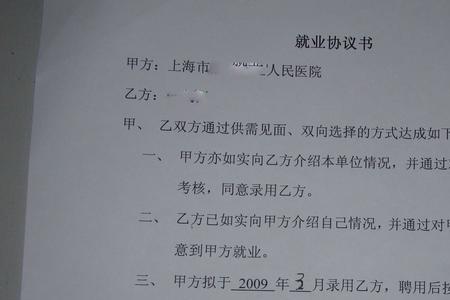 就业协议书
甲方：上海市 人民医院
乙方：
甲、 乙双方通过供需见面、双向选择的方式达成如下
一、 甲方亦如实向乙方介绍本单位情况，并通过
考核，同意录用乙方。
二、 乙方已如实向甲方介绍自己情况，并通过对甲
意到甲方就业。
三、 甲方拟于 2009 年 3 月录用乙方，聘用后按